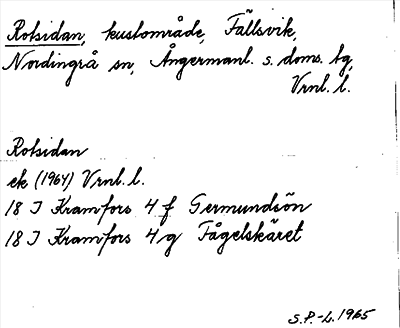 Rotsidan, kustområde, Fällsvik,
Nordingrå sn, Ångermanl. s. doms. tg,
Vrnl. l.
Rotsidan
ek (1964) Vrnl. l.
18 I Kramfors 4 f Germundsön
18 I Kramfors 4 g Fågelskäret
S.P.-L. 1965